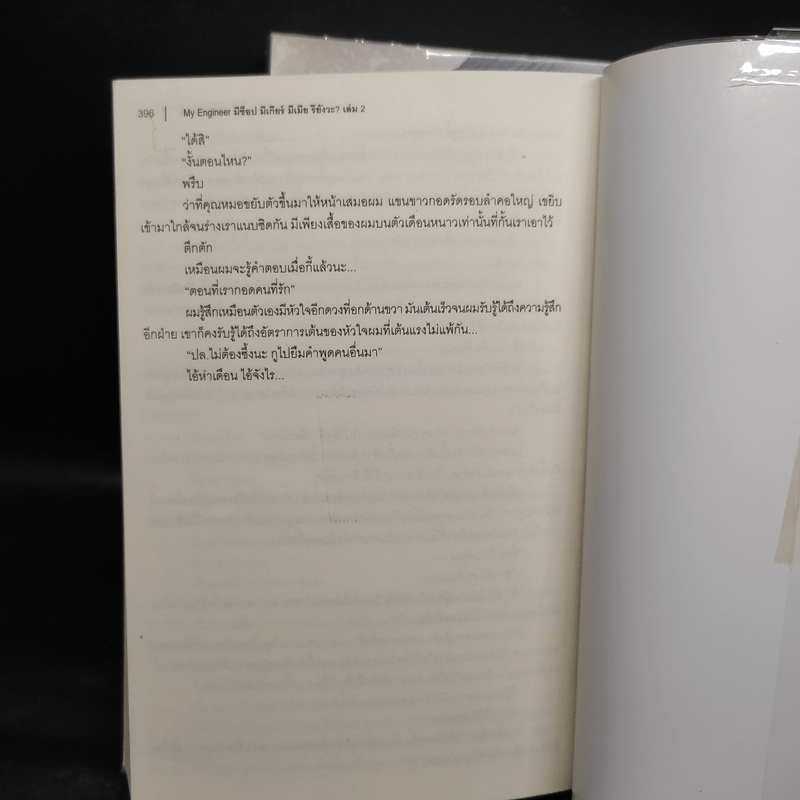 396 | My Engineer มีช็อป มีเกียร์ มีเมีย รึยังวะ? เล่ม 2
“ได้สิ”
“งั้นตอนไหน?”
พรึบ
ว่าที่คุณหมอขยับตัวขึ้นมาให้หน้าเสมอผม แขนขาวกอดรัดรอบลำคอใหญ่ เขยิบ
เข้ามาใกล้จนร่างเราแนบชิดกัน มีเพียงเสื้อของผมบนตัวเดือนหนาวเท่านั้นที่กั้นเราเอาไว้
ตึกตัก
เหมือนผมจะรู้คำตอบเมื่อกี้แล้วนะ...
“ตอนที่เรากอดคนที่รัก”
ผมรู้สึกเหมือนตัวเองมีหัวใจอีกดวงที่อกด้านขวา มันเต้นเร็วจนผมรับรู้ได้ถึงความรู้สึก
อีกฝ่าย เขาก็คงรับรู้ได้ถึงอัตราการเต้นของหัวใจผมที่เต้นแรงไม่แพ้กัน...
“ปล.ไม่ต้องซึ้งนะ กูไปยืมคำพูดคนอื่นมา”
ไอ้ห่าเดือน ไอ้จังไร...